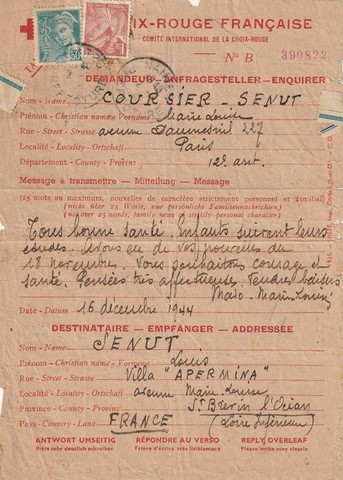 CROIX-ROUGE FRANÇAISE
COMITÉ INTERNATIONAL DE LA CROIX-ROUGE
N° B 390822
DEMANDEUR - ANFRAGESTELLER - ENQUIRER
Nom - Name COURSIER SENUT
Prénom - Christian name - Vorname Marie Louise
Rue - Street - Strasse avenue Daumesnil 227
Localité - Locality - Ortschaft Paris
Département - County - Provinz 12e arrt.
Message à transmettre - Mitteilung - Message
(25 mots au maximum, nouvelles de caractère strictement personnel et familial)
(nicht über 25 Worte, nur persönliche Familiennachrichten)
(not over 25 words, family news of strictly personal character)
Tous bonne santé. Enfants suivent leurs
études. Avons eu de vos nouvelles du
18 novembre. Vous souhaitons courage et
santé. Pensées très affectueuses. Tendres baisers
Marie-Louise
Date - Datum 16 décembre 1944
DESTINATAIRE - EMPFÄNGER - ADDRESSEE
Nom - Name SENUT
Prénom - Christian name - Vorname Louis
Rue - Street - Strasse Villa "APERMINA"
Localité - Locality - Ortschaft avenue Marie Louise
Province - County - Provinz St Brévin l'Océan
Pays - Country - Land FRANCE (Loire Inférieure)
ANTWORT UMSEITIG RÉPONDRE AU VERSO REPLY OVERLEAF
Bitte sehr deutlich schreiben Prière d'écrire très lisiblement Please write very clearly